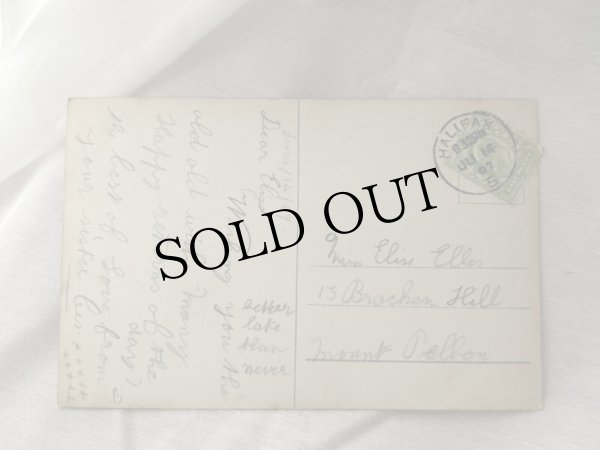 Dear Elsie
Wishing you the
old old wish Many
Happy returns of the
day
the best of love from
your sister
better
late
than
never
HALIFAX
8.30PM
JU 14
07
Miss Elsie Ellis
13 Bracken Hill
Mount Pellon
SOLD OUT